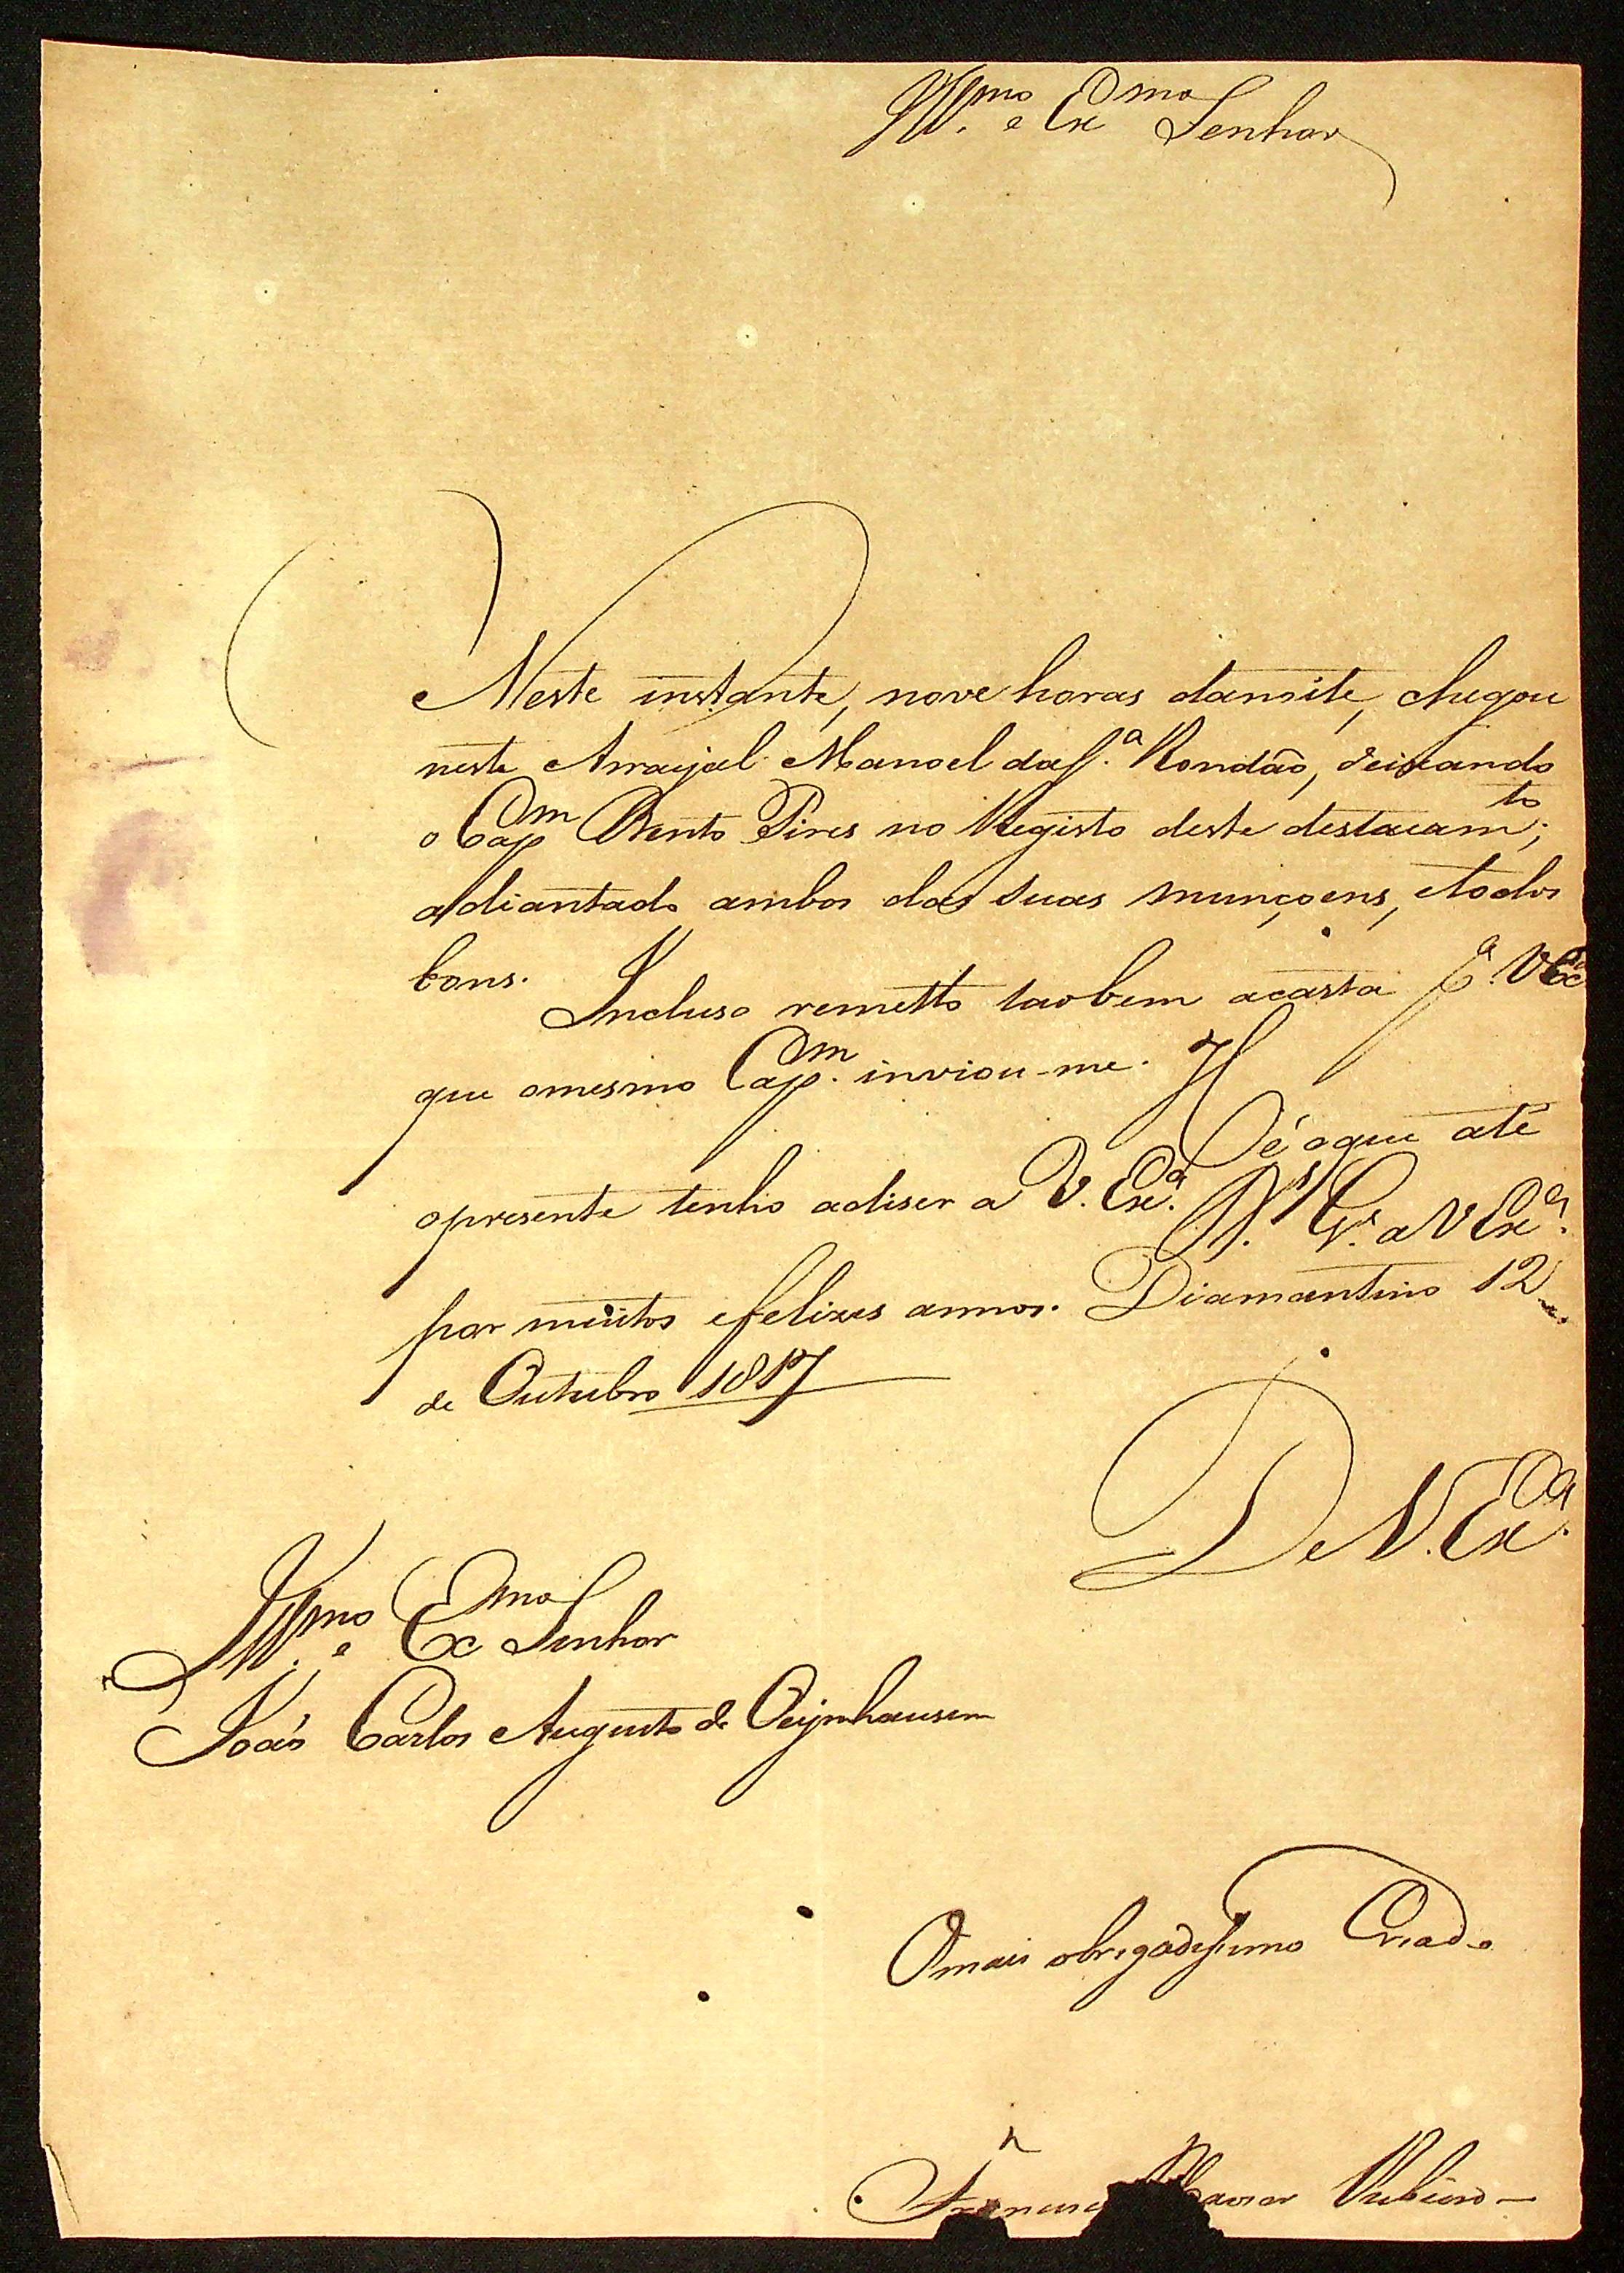 Illmo. e Exmo Senhor
Neste instante, nove horas danoite, chegou
neste Arrayal Manoel da S.ª Rondão, deixando
o Capm Bento Pires no Registo deste destacamto;
adiantado ambos das suas munçoens, etodos
bons.
Incluso remetto taobem acarta pª. VExª
que omesmo Capm. inviou-me.
é oque até
opresente tenho adiser a V. Exª. Ds. Ge. a VExª.
por muitos efelizes annos. Diamantino 12
de Outubro 1817
De V. Exª.
Illmo. e Exmo Senhor
João Carlos Augusto de Oeynhausen
Omais obrigadissimo Criado
Francisc Xavier Ribeiro